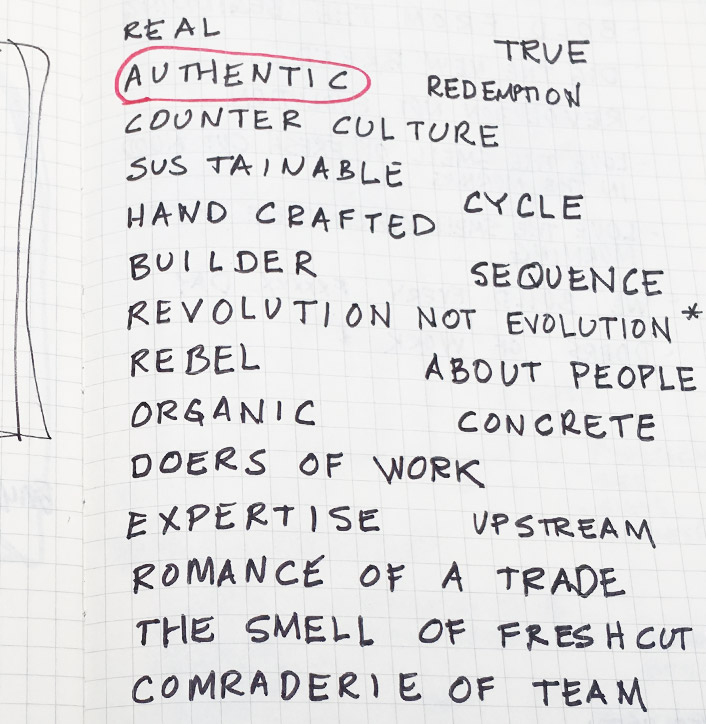 REAL
TRUE
AUTHENTIC
REDEMPTION
COUNTER CULTURE
SUSTAINABLE
CYCLE
HAND CRAFTED
BUILDER
SEQUENCE
REVOLUTION NOT EVOLUTION *
REBEL
ABOUT PEOPLE
ORGANIC
CONCRETE
DOERS OF WORK
EXPERTISE
UPSTREAM
ROMANCE OF A TRADE
THE SMELL OF FRESH CUT
COMRADERIE OF TEAM